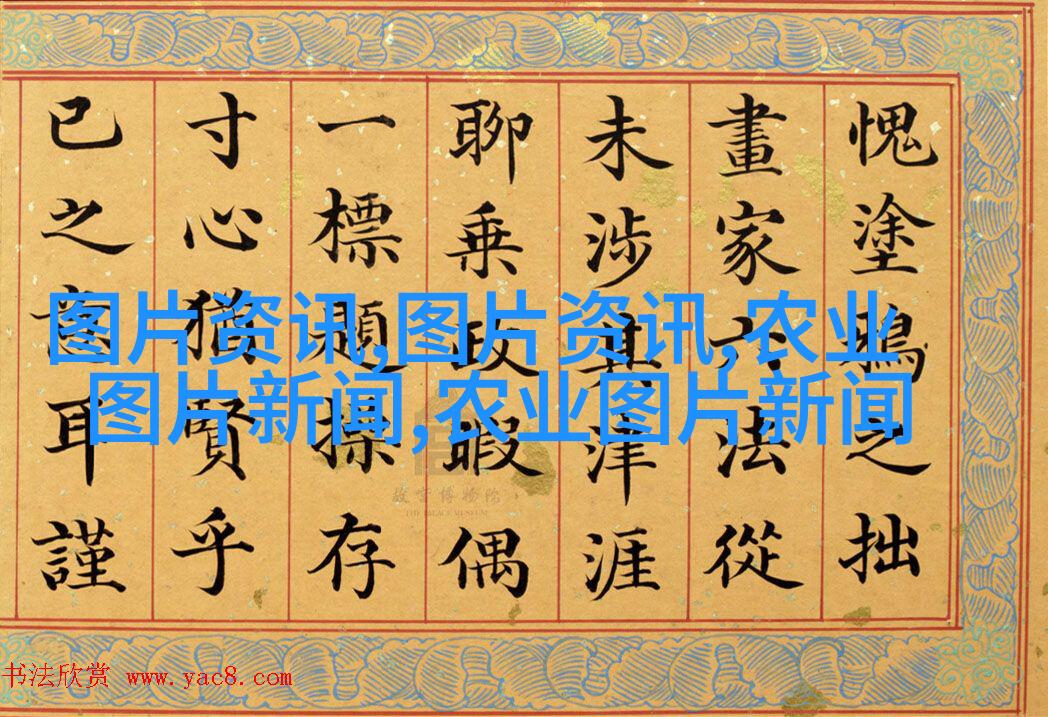 愧塗鴉之拙
畫家六法從
未涉其津涯
聊乘政暇偶
一標題操存
寸心猶賢乎
已之意耳謹
图片资讯,图片资讯,农业
图片新闻,农业图片新闻
故宫博物院
THE PALACE MUSEUM
书法欣赏 www.yac8.com